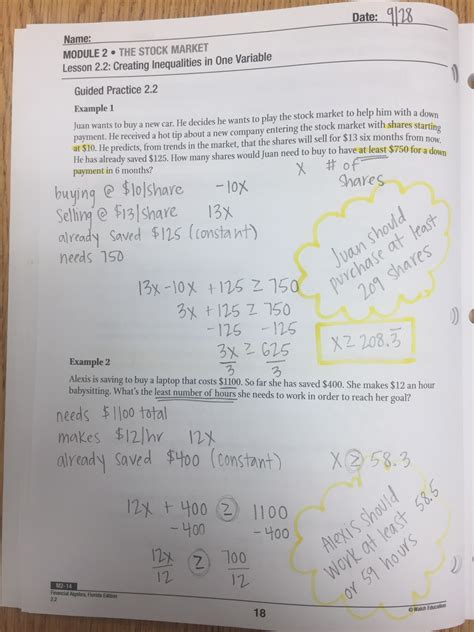 Date: 9/28
Name:
MODULE 2 • THE STOCK MARKET
Lesson 2.2: Creating Inequalities in One Variable
Guided Practice 2.2
Example 1
Juan wants to buy a new car. He decides he wants to play the stock market to help him with a down
payment. He received a hot tip about a new company entering the stock market with shares starting
at $10. He predicts, from trends in the market, that the shares will sell for $13 six months from now.
He has already saved $125. How many shares would Juan need to buy to have at least $750 for a down
payment in 6 months?
X # of shares
buying @ $10/share -10X
Selling @ $13/share 13X
already saved $125 (constant)
needs 750
Juan should
purchase at least
209 shares
13X-10X + 125 ≥ 750
3X + 125 ≥ 750
-125 -125
3X ≥ 625
3 3
X ≥ 208.3̅
Example 2
Alexis is saving to buy a laptop that costs $1100. So far she has saved $400. She makes $12 an hour
babysitting. What's the least number of hours she needs to work in order to reach her goal?
needs $1100 total
makes $12/hr 12X
already saved $400 (constant)
X ≥ 58.3
12X + 400 ≥ 1100
-400 -400
12X ≥ 700
12 12
Alexis should
work at least 58.5
or 59 hours
M2-14
Financial Algebra, Florida Edition
2.2
18
© Walch Education